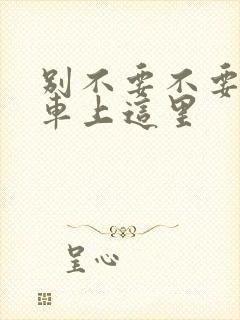 别不要不要
車上這里
呈心